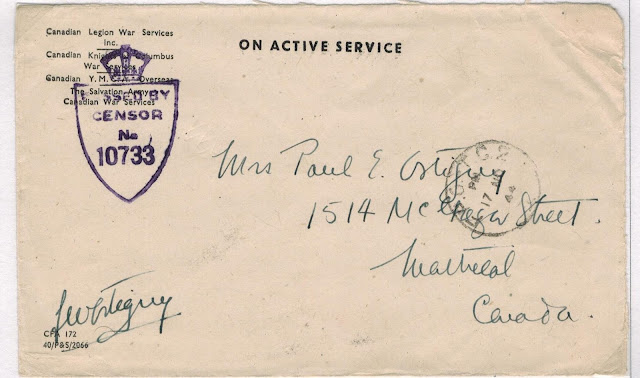 Canadian Legion War Services
Inc.
Canadian Knights of Columbus
War Services
Canadian Y.M.C.A. Overseas
The Salvation Army
Canadian War Services
ON ACTIVE SERVICE
PASSED BY
CENSOR
No
10733
Mrs Paul E. Ostiguy
1514 McGregor Street.
Montreal
Canada.
PM
17
44
CFA 172
40/P&S/2066